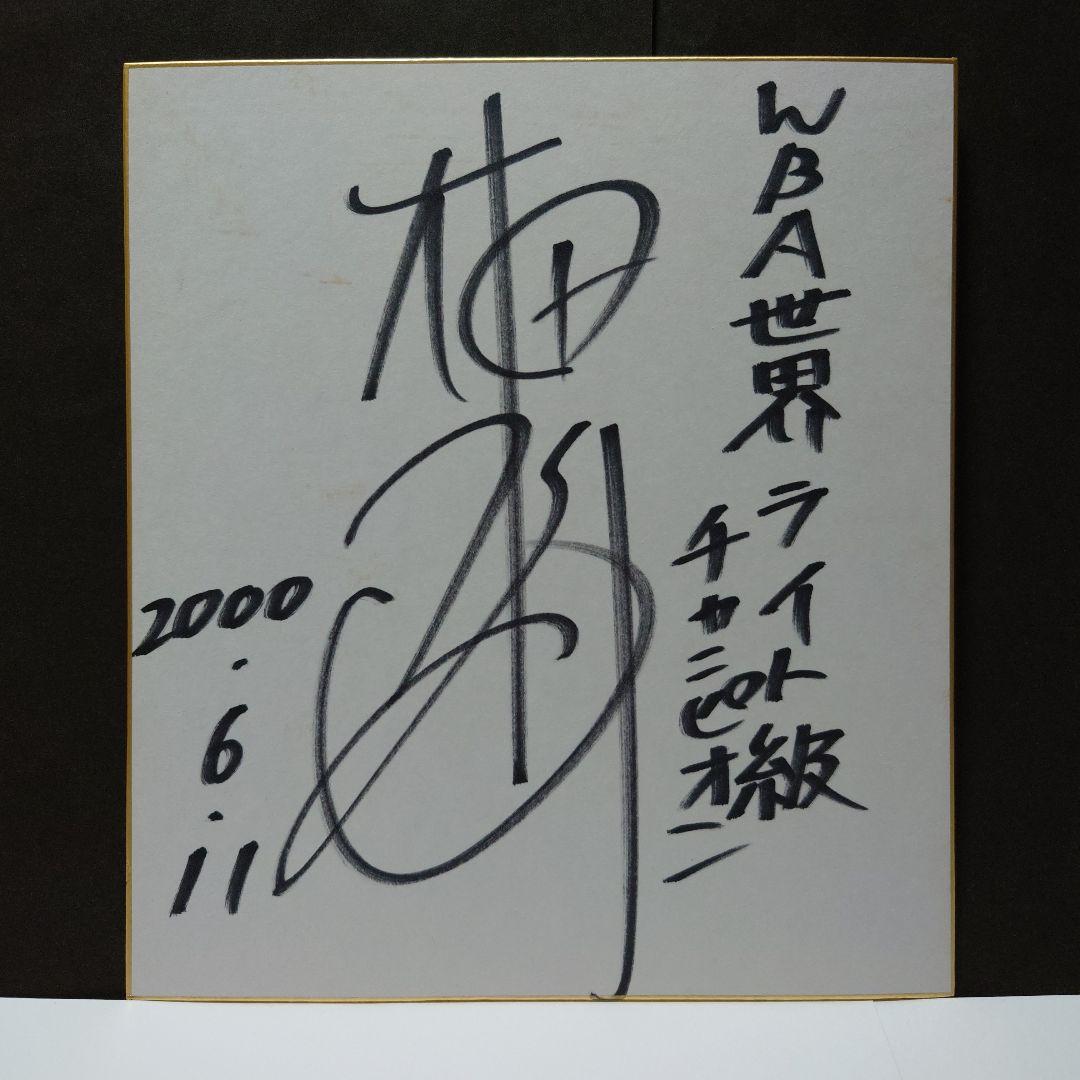 WBA世界ライト級
チャンピオン
2000.6.11